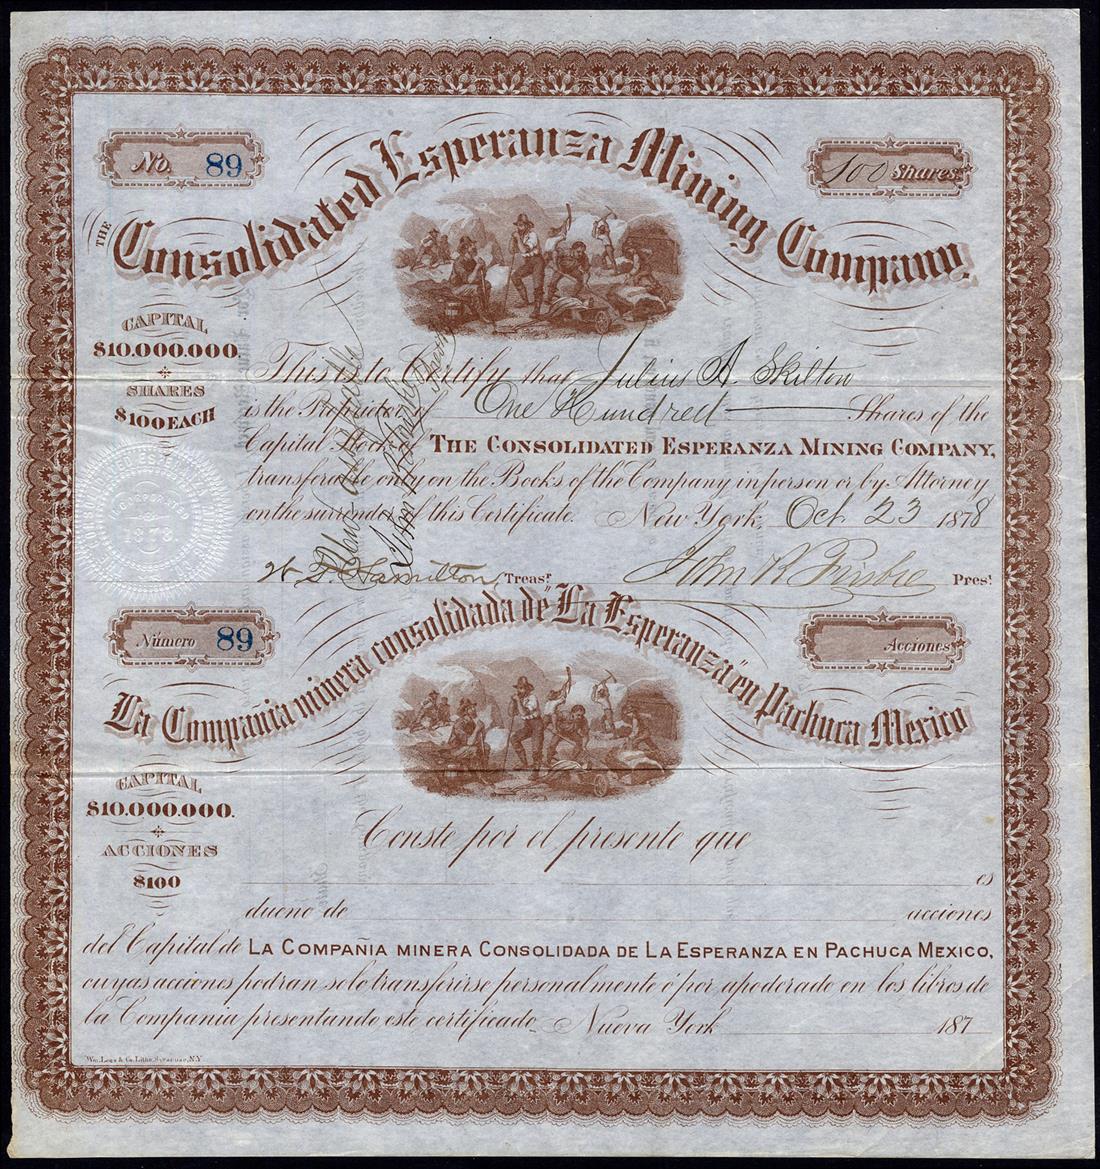 No. 89
100 Shares
THE Consolidated Esperanza Mining Company.
CAPITAL
$10.000.000.
SHARES
$100 EACH
This is to Certify that Julius A. Skilton
is the Proprietor of One Hundred Shares of the
Capital Stock THE CONSOLIDATED ESPERANZA MINING COMPANY,
transferable only on the Books of the Company in person or by Attorney
on the surrender of this Certificate. New York Oct 23 1878
INCORPORATED
1878.
Hamilton Treasr.
John B. Frisbie Prest.
Número 89
Acciones
La Compañia minera consolidada de "La Esperanza" en Pachuca Mexico
CAPITAL
$10.000.000.
ACCIONES
$100
Conste por el presente que
es
dueno de acciones
del Capital de LA COMPAÑIA MINERA CONSOLIDADA DE LA ESPERANZA EN PACHUCA MEXICO,
cuyas acciones podran solo transferirse personalmente ó por apoderado en los libros de
la Compania presentando este certificado Nueva York 187
Lith. Syracuse, N.Y.